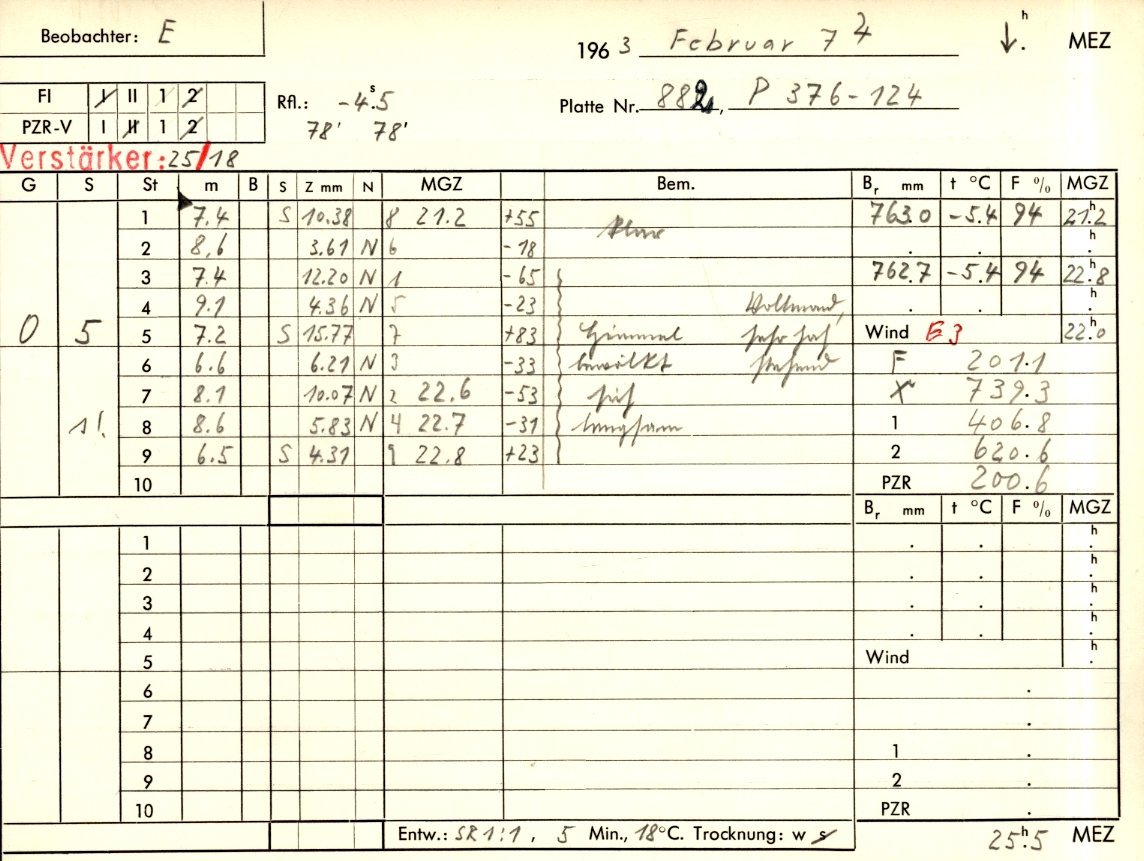 Beobachter: E
1963 Februar 7 h MEZ
FI I II 1 2
PZR-V I II 1 2
Rfl.: -4.s5
78' 78'
Platte Nr. 882, P 376-124
Verstärker: 25/18
G S St m B S Z mm N MGZ Bem. Br mm t °C F % MGZ
1 7.4 S 10.38 8 21.2 +55 klar 763.0 -5.4 94 21h.2
2 8.6 3.61 N 6 -18 . . h.
3 7.4 12.20 N 1 -65 762.7 -5.4 94 22h.8
4 9.1 4.36 N 5 -23 Vollmond, . . h.
0 5 5 7.2 S 15.77 7 +83 Himmel sehr Wind E3 22h.0
6 6.6 6.21 N 3 -33 bewölkt stehend F 201.1
7 8.1 10.07 N 2 22.6 -53 sich X 739.3
1! 8 8.6 5.83 N 4 22.7 -31 langsam 1 406.8
9 6.5 S 4.31 9 22.8 +23 2 620.6
10 PZR 200.6
Br mm t °C F % MGZ
1 . . h.
2 . . h.
3 . . h.
4 . . h.
5 Wind h.
6 .
7 .
8 1 .
9 2 .
10 PZR .
Entw.: SR 1:1, 5 Min., 18°C. Trocknung: w s 25h.5 MEZ